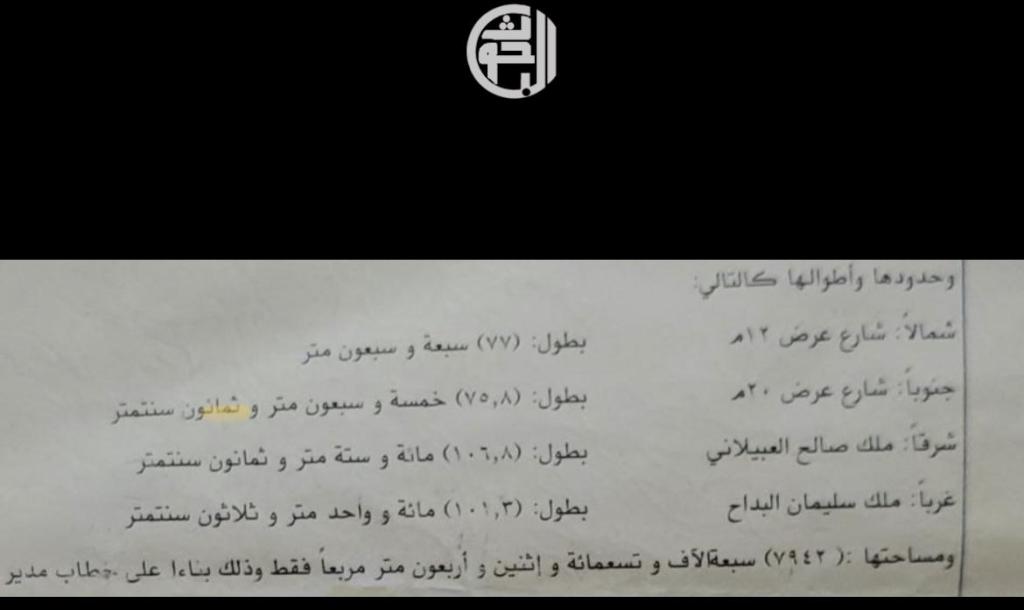 البحوث
وحدودها وأطوالها كالتالي:
شمالاً: شارع عرض ١٢م بطول: (٧٧) سبعة و سبعون متر
جنوباً: شارع عرض ٢٠م بطول: (٧٥,٨) خمسة و سبعون متر و ثمانون سنتمتر
شرقاً: ملك صالح العبيلاني بطول: (١٠٦,٨) مائة و ستة متر و ثمانون سنتمتر
غرباً: ملك سليمان البداح بطول: (١٠١,٣) مائة و واحد متر و ثلاثون سنتمتر
ومساحتها :( ٧٩٤٢) سبعةالآف و تسعمائة و إثنين و أربعون متر مربعاً فقط وذلك بناءا على خطاب مدير